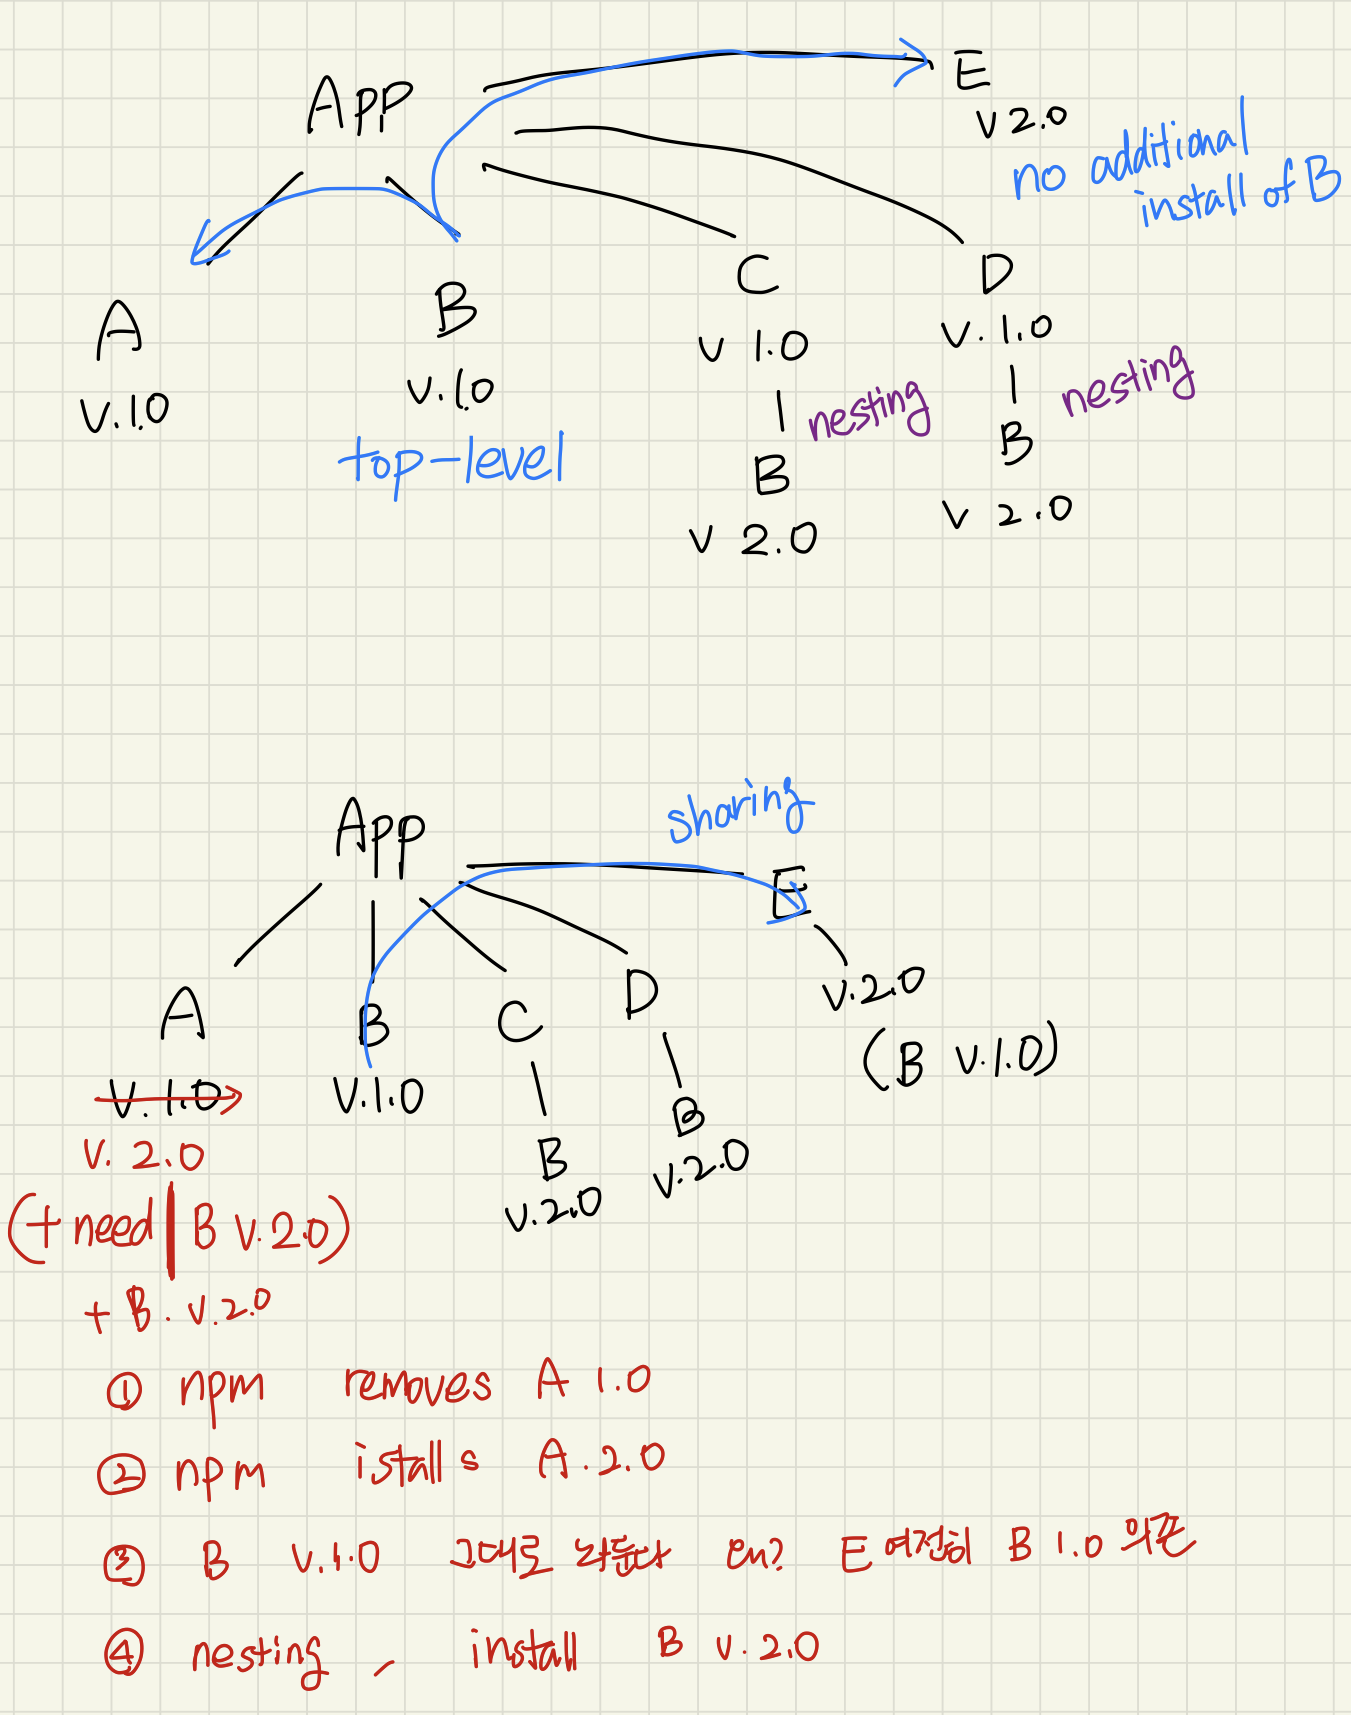 App
E
v 2.0
no additional
install of B
A
v.1.0
B
v.1.0
top-level
C
v 1.0
nesting
B
v 2.0
D
v. 1.0
nesting
B
v 2.0
App
sharing
E
v.2.0
(B v.1.0)
A
v.1.0
v. 2.0
(+ need B v.2.0)
+ B. v.2.0
B
v.1.0
C
B
v.2.0
D
B
v.2.0
① npm removes A 1.0
② npm istalls A.2.0
③ B v.1.0 그대로 놔둔다 왜? E 여전히 B 1.0 의존
④ nesting, install B v.2.0